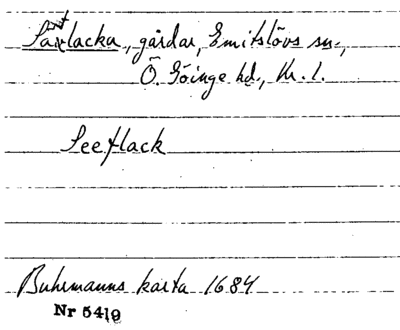 Saxtlacka, gårdar, Emitslövs sn.,
Ö. Göinge hd., Kr. l.
Seeflack
Buhrmanns karta 1684
Nr 5419